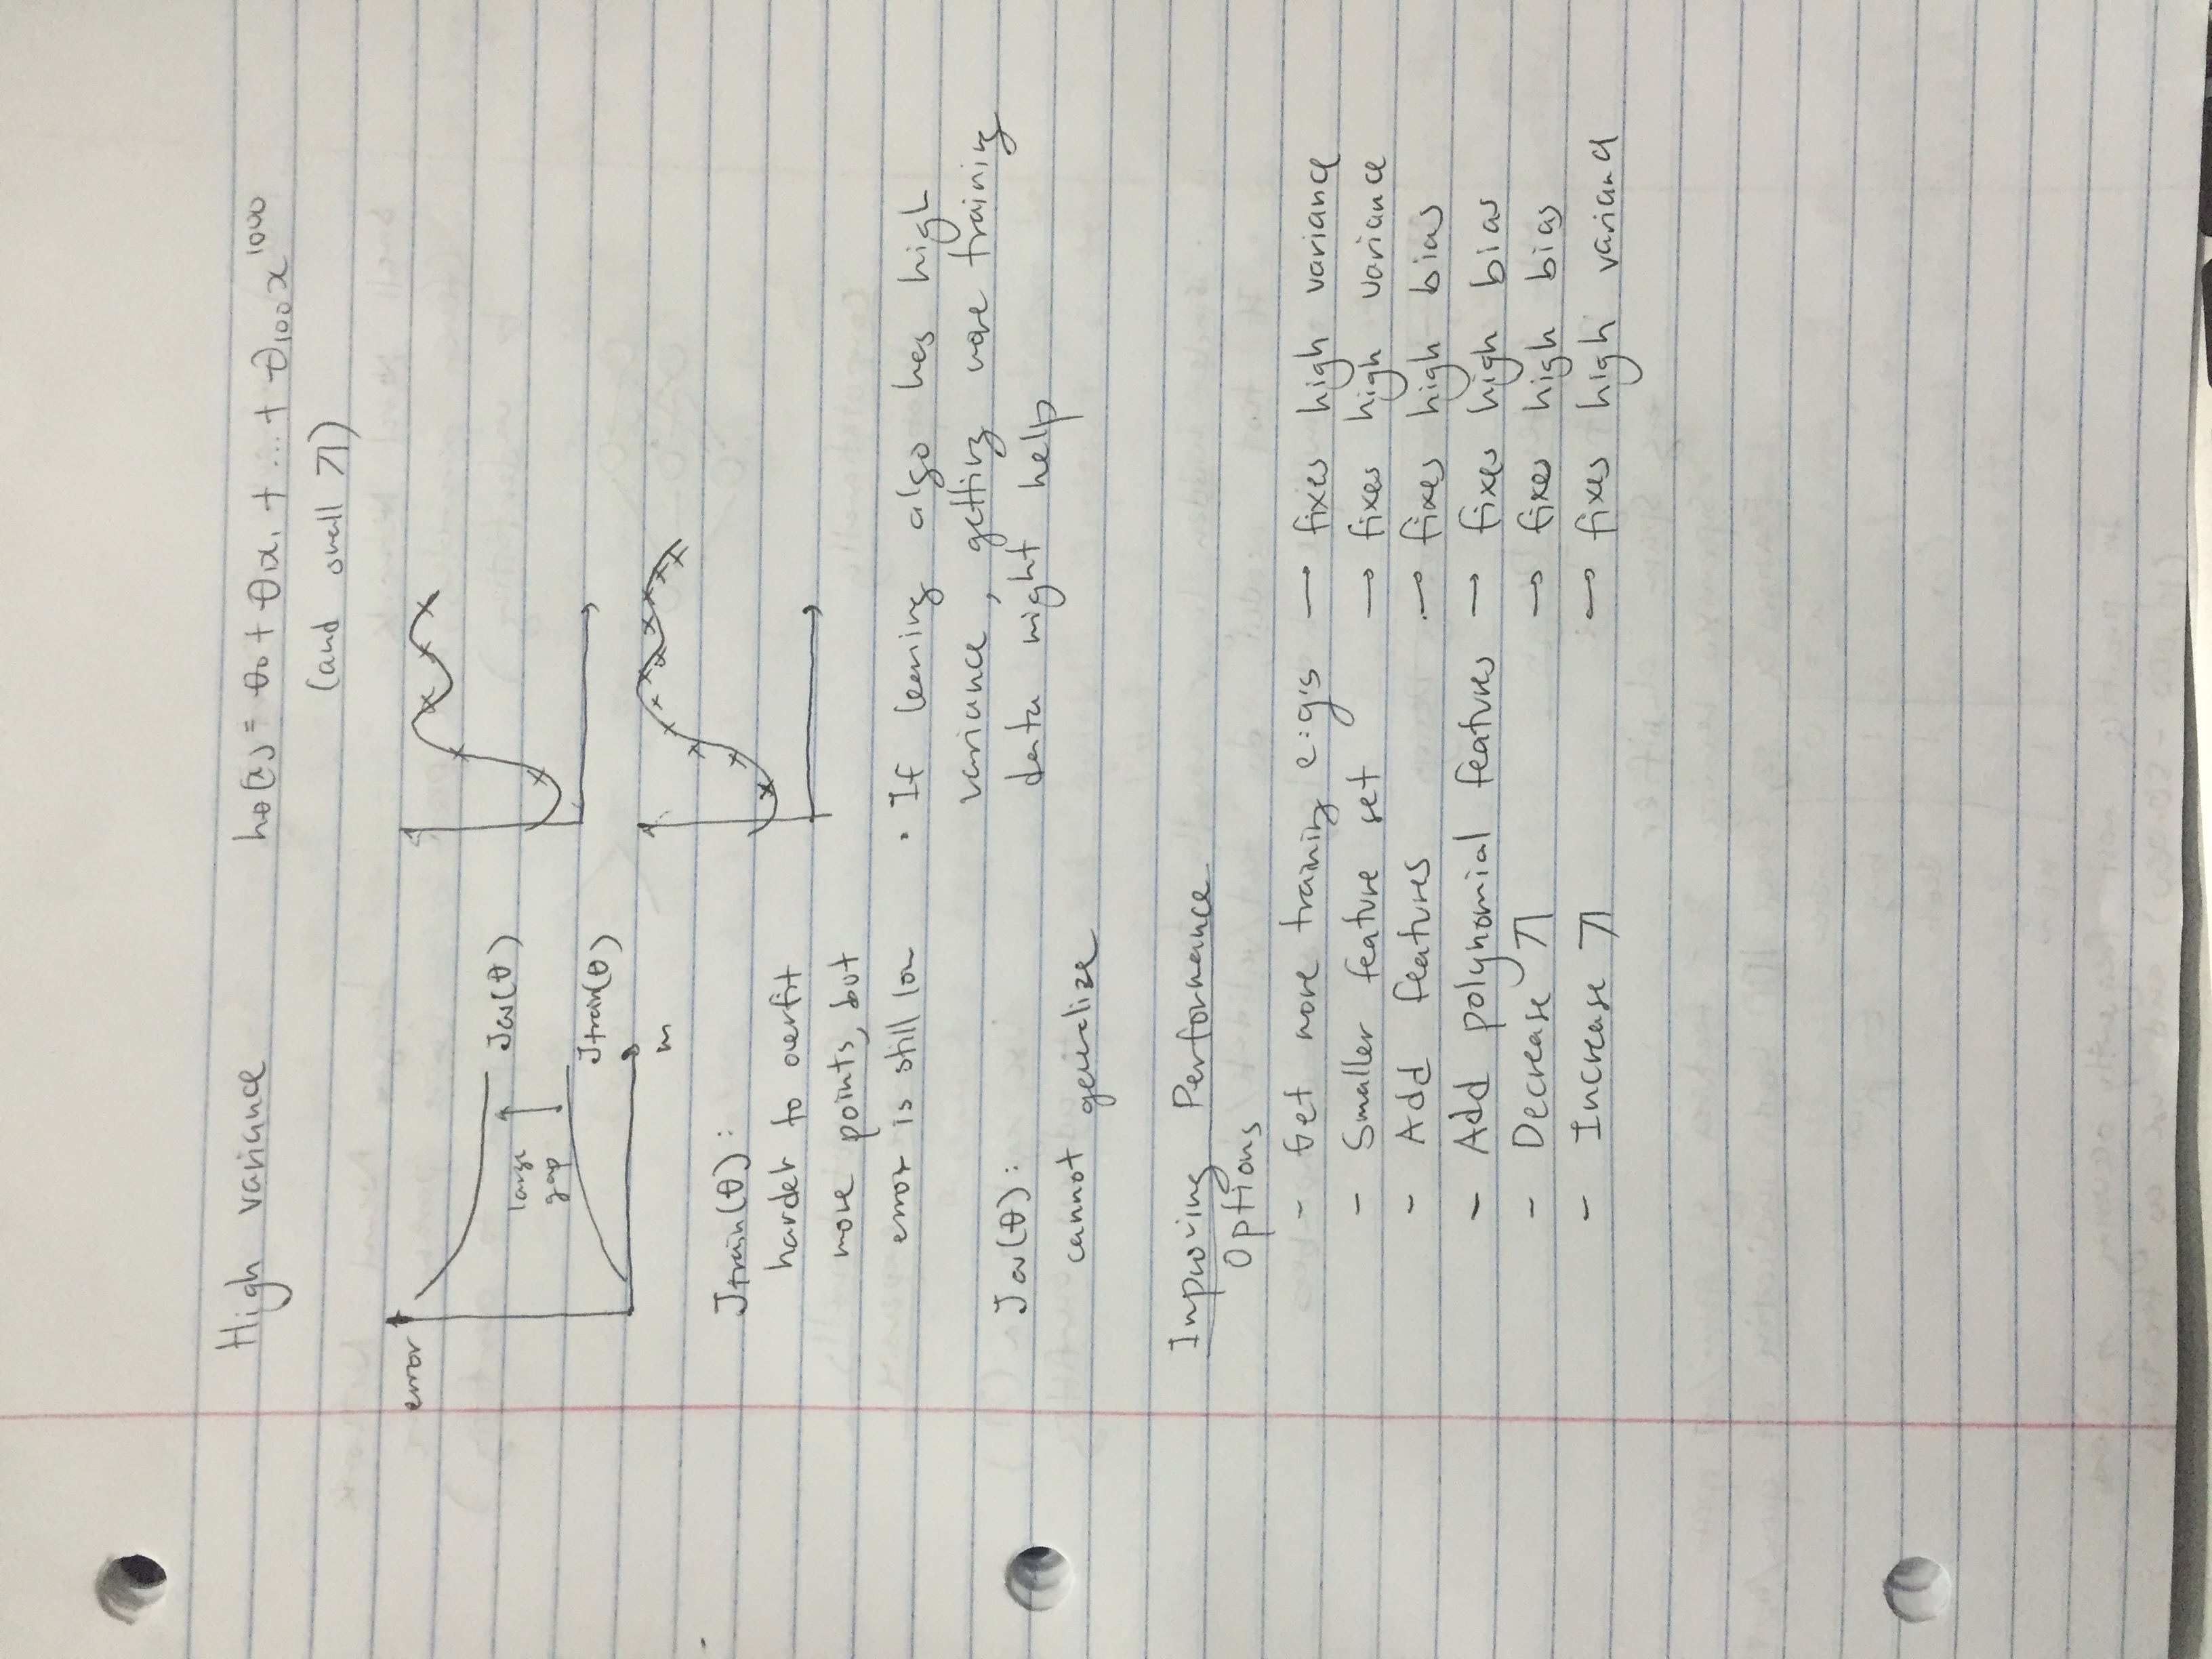 High variance
hθ(x) = θ0 + θ1x1 + ... + θ100x^1000
(and small λ)
error
Jcv(θ)
large
gap
Jtrain(θ)
m
Jtrain(θ):
harder to overfit
more points, but
error is still low
Jcv(θ):
cannot generalize
• If learning algo has high
variance, getting more training
data might help
Improving Performance
Options
- Get more training e.g's → fixes high variance
- Smaller feature set → fixes high variance
- Add features → fixes high bias
- Add polynomial features → fixes high bias
- Decrease λ → fixes high bias
- Increase λ → fixes high variance